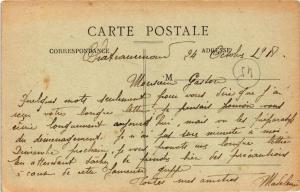 CARTE POSTALE
CORRESPONDANCE
ADRESSE
24 Octobre 1918
M
Monsieur Gaston
Quelques mots seulement pour vous dire que j'ai
reçu votre longue lettre je pensais pouvoir vous
écrire longuement aujourd'hui, mais vu les préparatifs
du déménagement. Je n'ai pas une minute à moi
Dimanche prochain, je vous promets une longue lettre
En attendant tâchez de prendre bien des précautions
à cause de cette grippe
Toutes mes amitiés
Madeleine